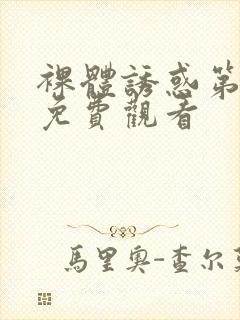 裸體誘惑第
免費觀看
馬里奧-查尔